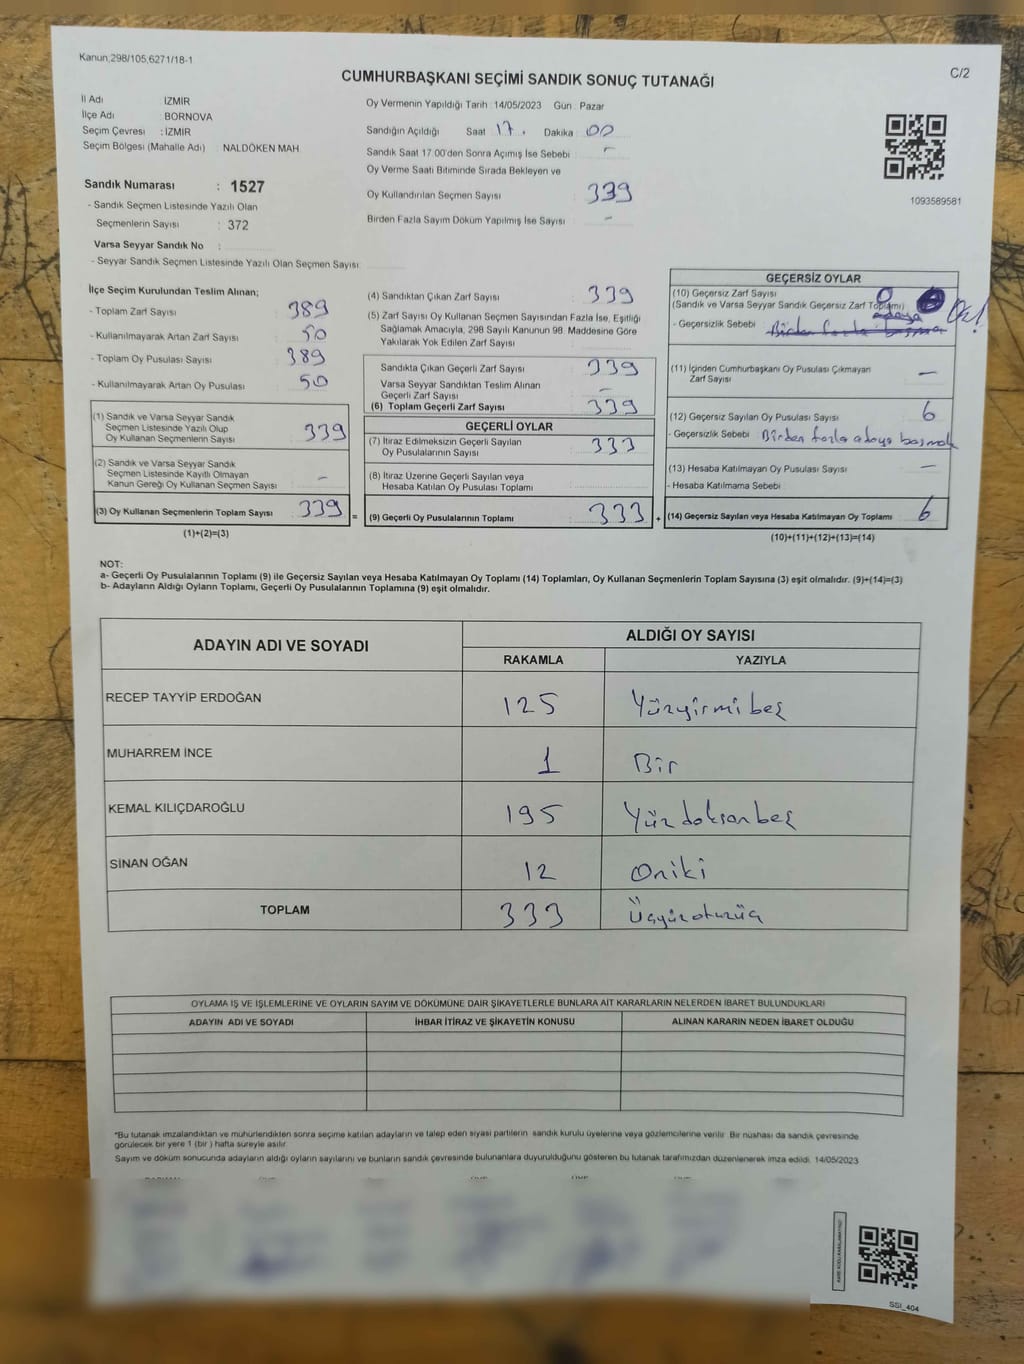 Kanun;298/105,6271/18-1
C/2
CUMHURBAŞKANI SEÇİMİ SANDIK SONUÇ TUTANAĞI
İl Adı İZMİR
İlçe Adı BORNOVA
Seçim Çevresi : İZMİR
Seçim Bölgesi (Mahalle Adı) : NALDÖKEN MAH.
Oy Vermenin Yapıldığı Tarih : 14/05/2023 Gün : Pazar
Sandığın Açıldığı Saat 17. Dakika : 00
Sandık Saat 17.00'den Sonra Açımış İse Sebebi : -
Oy Verme Saati Bitiminde Sırada Bekleyen ve
Oy Kullandırılan Seçmen Sayısı : 339
Birden Fazla Sayım Döküm Yapılmış İse Sayısı : -
1093589581
Sandık Numarası : 1527
- Sandık Seçmen Listesinde Yazılı Olan
Seçmenlerin Sayısı : 372
Varsa Seyyar Sandık No :
- Seyyar Sandık Seçmen Listesinde Yazılı Olan Seçmen Sayısı:
İlçe Seçim Kurulundan Teslim Alınan;
- Toplam Zarf Sayısı : 389
- Kullanılmayarak Artan Zarf Sayısı : 50
- Toplam Oy Pusulası Sayısı : 389
- Kullanılmayarak Artan Oy Pusulası : 50
(1) Sandık ve Varsa Seyyar Sandık
Seçmen Listesinde Yazılı Olup
Oy Kullanan Seçmenlerin Sayısı : 339
(2) Sandık ve Varsa Seyyar Sandık
Seçmen Listesinde Kayıtlı Olmayan
Kanun Gereği Oy Kullanan Seçmen Sayısı : -
(3) Oy Kullanan Seçmenlerin Toplam Sayısı : 339 =
(1)+(2)=(3)
(4) Sandıktan Çıkan Zarf Sayısı : 339
(5) Zarf Sayısı Oy Kullanan Seçmen Sayısından Fazla İse, Eşitliği
Sağlamak Amacıyla, 298 Sayılı Kanunun 98. Maddesine Göre
Yakılarak Yok Edilen Zarf Sayısı :
Sandıkta Çıkan Geçerli Zarf Sayısı : 339
Varsa Seyyar Sandıktan Teslim Alınan
Geçerli Zarf Sayısı : -
(6) Toplam Geçerli Zarf Sayısı : 339
GEÇERLİ OYLAR
(7) İtiraz Edilmeksizin Geçerli Sayılan
Oy Pusulalarının Sayısı : 333
(8) İtiraz Üzerine Geçerli Sayılan veya
Hesaba Katılan Oy Pusulası Toplamı
(9) Geçerli Oy Pusulalarının Toplamı : 333 +
GEÇERSİZ OYLAR
(10) Geçersiz Zarf Sayısı 0
(Sandık ve Varsa Seyyar Sandık Geçersiz Zarf Toplamı)
- Geçersizlik Sebebi : Birden fazla adaya basma
(11) İçinden Cumhurbaşkanı Oy Pusulası Çıkmayan
Zarf Sayısı -
(12) Geçersiz Sayılan Oy Pusulası Sayısı : 6
- Geçersizlik Sebebi : Birden fazla adaya basmak
(13) Hesaba Katılmayan Oy Pusulası Sayısı : -
- Hesaba Katılmama Sebebi :
(14) Geçersiz Sayılan veya Hesaba Katılmayan Oy Toplamı 6
(10)+(11)+(12)+(13)=(14)
NOT:
a- Geçerli Oy Pusulalarının Toplamı (9) ile Geçersiz Sayılan veya Hesaba Katılmayan Oy Toplamı (14) Toplamları, Oy Kullanan Seçmenlerin Toplam Sayısına (3) eşit olmalıdır. (9)+(14)=(3)
b- Adayların Aldığı Oyların Toplamı, Geçerli Oy Pusulalarının Toplamına (9) eşit olmalıdır.
ADAYIN ADI VE SOYADI
ALDIĞI OY SAYISI
RAKAMLA YAZIYLA
RECEP TAYYİP ERDOĞAN 125 Yüzyirmibeş
MUHARREM İNCE 1 Bir
KEMAL KILIÇDAROĞLU 195 Yüzdoksanbeş
SİNAN OĞAN 12 Oniki
TOPLAM 333 Üçyüzotuzüç
OYLAMA İŞ VE İŞLEMLERİNE VE OYLARIN SAYIM VE DÖKÜMÜNE DAİR ŞİKAYETLERLE BUNLARA AİT KARARLARIN NELERDEN İBARET BULUNDUKLARI
ADAYIN ADI VE SOYADI İHBAR İTİRAZ VE ŞİKAYETİN KONUSU ALINAN KARARIN NEDEN İBARET OLDUĞU
*Bu tutanak imzalandıktan ve mühürlendikten sonra seçime katılan adayların ve talep eden siyasi partilerin sandık kurulu üyelerine veya gözlemcilerine verilir. Bir nüshası da sandık çevresinde
görülecek bir yere 1 (bir) hafta süreyle asılır.
Sayım ve döküm sonucunda adayların aldığı oyların sayılarını ve bunların sandık çevresinde bulunanlara duyurulduğunu gösteren bu tutanak tarafımızdan düzenlenerek imza edildi. 14/05/2023
SSI_404